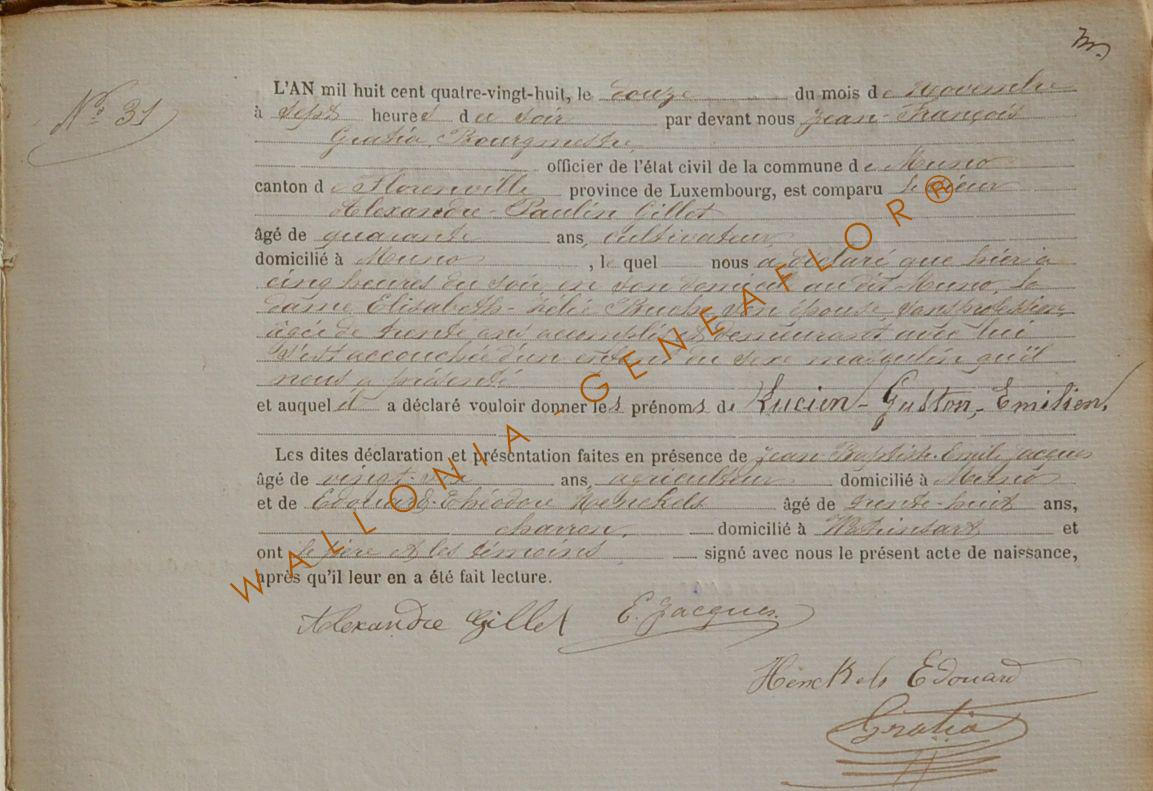 m.
N° 31
L'AN mil huit cent quatre-vingt-huit, le douze du mois de novembre
à sept heures du soir par devant nous Jean-François
Gratia, Bourgmestre,
officier de l'état civil de la commune de Muno
canton de Florenville province de Luxembourg, est comparu le sieur
Alexandre-Paulin Gillet
âgé de quarante ans, cultivateur,
domicilié à Muno, lequel nous a déclaré que hier à
cinq heures du soir, en son domicile au dit Muno, la
dame Elisabeth-Zélie son épouse, sans profession,
âgée de trente ans accomplis et demeurant avec lui
s'est accouchée d'un enfant du sexe masculin qu'il
nous a présenté
et auquel il a déclaré vouloir donner les prénoms de Lucien-Gaston-Emilien.
Les dites déclaration et présentation faites en présence de Jean Baptiste Emile Jacques
âgé de vingt ans, agriculteur domicilié à Muno
et de Edouard-Théodore Henckels âgé de trente-huit ans,
charron, domicilié à et
ont le père et les témoins, signé avec nous le présent acte de naissance,
après qu'il leur en a été fait lecture.
Alexandre Gillet E. Jacques
Henckels Edouard
Gratia
WALLONIA - GENEAFLOR®